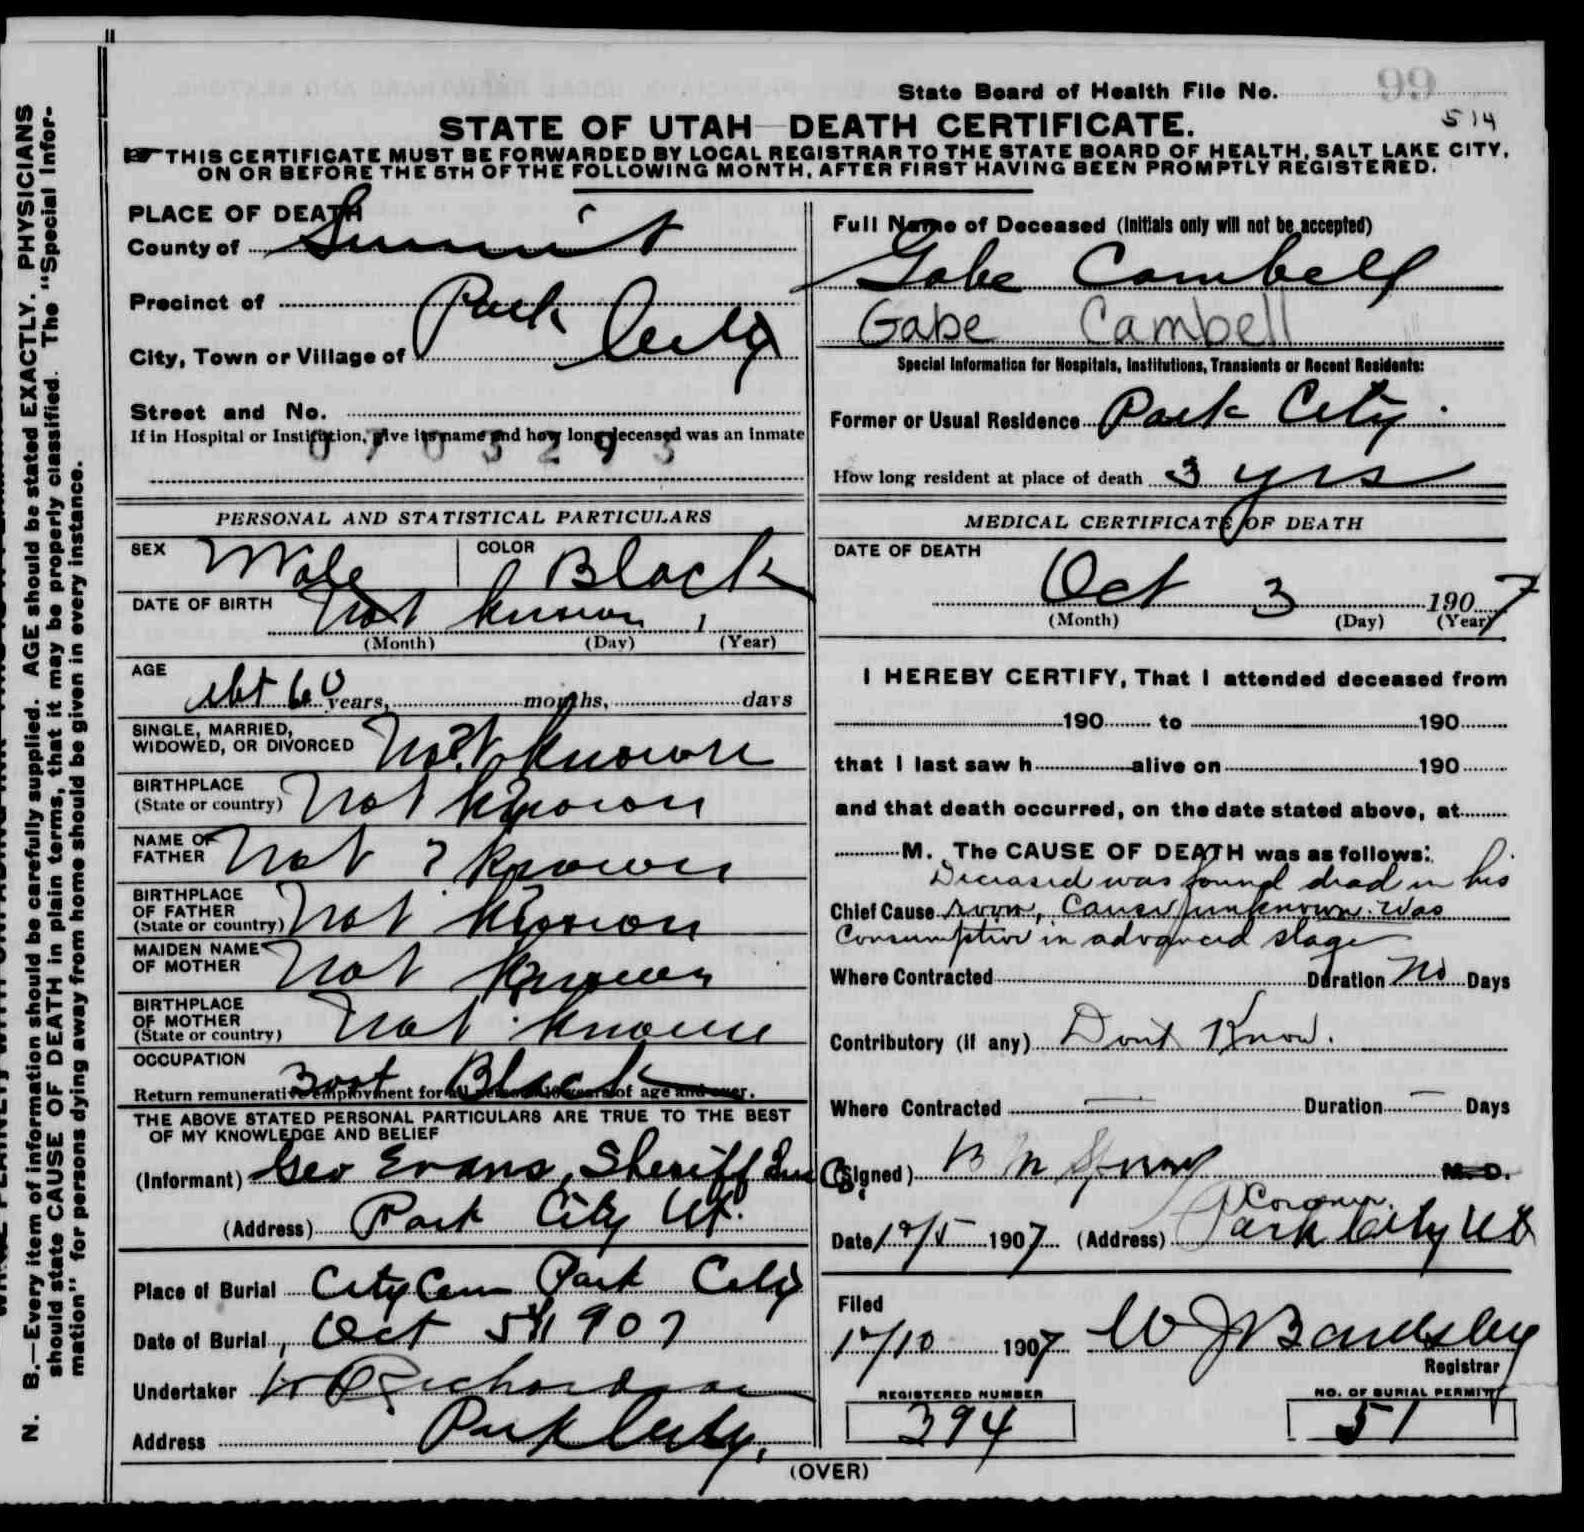 N. B.—Every item of information should be carefully supplied. AGE should be stated EXACTLY. PHYSICIANS
should state CAUSE OF DEATH in plain terms, that it may be properly classified. The "Special Infor-
mation" for persons dying away from home should be given in every instance.
State Board of Health File No. 99
514
STATE OF UTAH—DEATH CERTIFICATE.
THIS CERTIFICATE MUST BE FORWARDED BY LOCAL REGISTRAR TO THE STATE BOARD OF HEALTH, SALT LAKE CITY,
ON OR BEFORE THE 5TH OF THE FOLLOWING MONTH, AFTER FIRST HAVING BEEN PROMPTLY REGISTERED.
PLACE OF DEATH
County of Summit
Precinct of Park City
City, Town or Village of
Street and No.
If in Hospital or Institution, give its name and how long deceased was an inmate
0703293
PERSONAL AND STATISTICAL PARTICULARS
SEX Male COLOR Black
DATE OF BIRTH Not known 1
(Month) (Day) (Year)
AGE
abt 60 years, months, days
SINGLE, MARRIED,
WIDOWED, OR DIVORCED Not known
BIRTHPLACE
(State or country) Not known
NAME OF
FATHER Not ? known
BIRTHPLACE
OF FATHER
(State or country) Not known
MAIDEN NAME
OF MOTHER Not known
BIRTHPLACE
OF MOTHER
(State or country) Not known
OCCUPATION Boot Black
Return remunerative employment for all persons 10 years of age and over.
THE ABOVE STATED PERSONAL PARTICULARS ARE TRUE TO THE BEST
OF MY KNOWLEDGE AND BELIEF
(Informant) Geo Evans, Sheriff
(Address) Park City Ut.
Place of Burial City Cem Park City
Date of Burial, Oct 5th 1907
Undertaker Richardson
Address Park City.
Full Name of Deceased (Initials only will not be accepted)
Gabe Cambell
Gabe Cambell
Special Information for Hospitals, Institutions, Transients or Recent Residents:
Former or Usual Residence Park City.
How long resident at place of death 3 yrs
MEDICAL CERTIFICATE OF DEATH
DATE OF DEATH
Oct 3 1907
(Month) (Day) (Year)
I HEREBY CERTIFY, That I attended deceased from
190 to 190
that I last saw h alive on 190
and that death occurred, on the date stated above, at
M. The CAUSE OF DEATH was as follows:
Deceased was found dead in his
Chief Cause room, Cause unknown. Was
Consumptive in advanced stage
Where Contracted Duration No Days
Contributory (if any) Dont Know.
Where Contracted — Duration — Days
(Signed) B M M. D.
Coroner.
Date 10/5 1907 (Address) Park City Ut
Filed
10/10 1907 W J Bardsley
Registrar
REGISTERED NUMBER
394
NO. OF BURIAL PERMIT
51
(OVER)